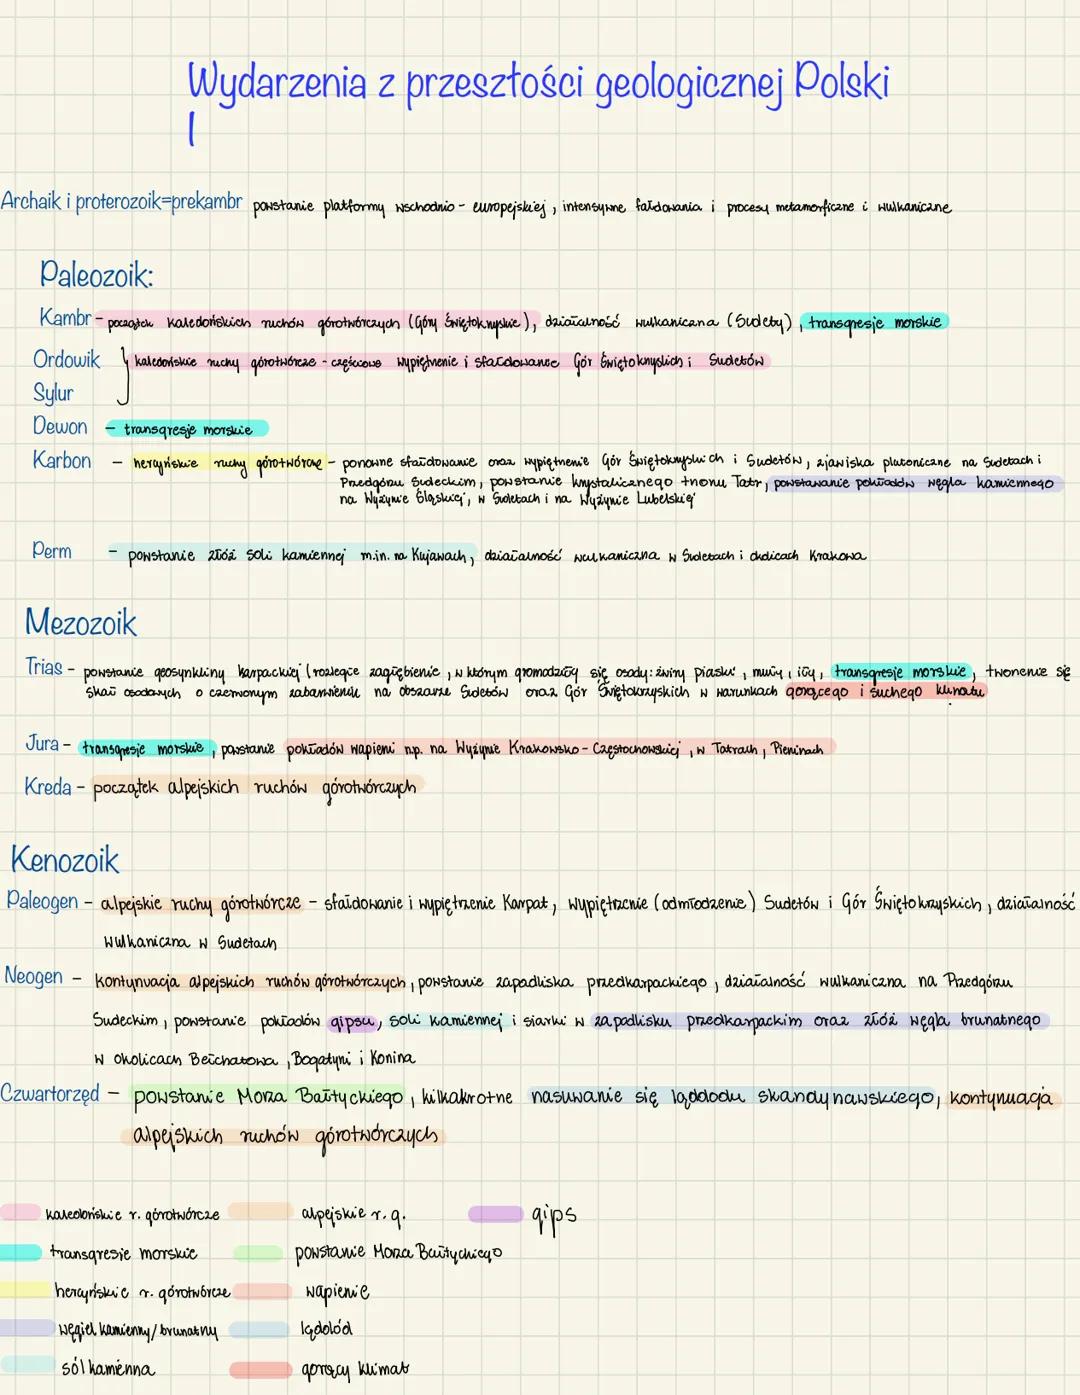 Wydarzenia z przeszłości geologicznej Polski
I
Archaik i proterozoik=prekambr powstanie platformy wschodnio - europejskiej, intensywne fałdowania i procesy metamorficzne i wulkaniczne
Paleozoik:
Kambr - początek kaledońskich ruchów górotwórczych (Góry Świętokrzyskie), działalność wulkaniczna (Sudety), transgresje morskie
Ordowik } kaledońskie ruchy górotwórcze - częściowe wypiętrzenie i sfałdowanie Gór Świętokrzyskich i Sudetów
Sylur
Dewon - transgresje morskie
Karbon - hercyńskie ruchy górotwórcze - ponowne sfałdowanie oraz wypiętrzenie Gór Świętokrzyskich i Sudetów, zjawiska plutoniczne na Sudetach i
Przedgórzu Sudeckim, powstanie krystalicznego trzonu Tatr, powstawanie pokładów węgla kamiennego
na Wyżynie Śląskiej, w Sudetach i na Wyżynie Lubelskiej
Perm - powstanie złóż soli kamiennej m.in. na Kujawach, działalność wulkaniczna w Sudetach i okolicach Krakowa
Mezozoik
Trias - powstanie geosynkliny karpackiej (rozległe zagłębienie, w którym gromadziły się osady: żwiry piaski, muły, iły, transgresje morskie, tworzenie się
skał osadowych o czerwonym zabarwieniu na obszarze Sudetów oraz Gór Świętokrzyskich w warunkach gorącego i suchego klimatu
Jura - transgresje morskie, powstanie pokładów wapieni np. na Wyżynie Krakowsko - Częstochowskiej, w Tatrach, Pieninach
Kreda - początek alpejskich ruchów górotwórczych
Kenozoik
Paleogen - alpejskie ruchy górotwórcze - sfałdowanie i wypiętrzenie Karpat, wypiętrzenie (odmłodzenie) Sudetów i Gór Świętokrzyskich, działalność
wulkaniczna w Sudetach
Neogen - kontynuacja alpejskich ruchów górotwórczych, powstanie zapadliska przedkarpackiego, działalność wulkaniczna na Przedgórzu
Sudeckim, powstanie pokładów gipsu, soli kamiennej i siarki w zapadlisku przedkarpackim oraz złóż węgla brunatnego
w okolicach Bełchatowa, Bogatyni i Konina
Czwartorzęd - powstanie Morza Bałtyckiego, kilkakrotne nasuwanie się lądolodu skandynawskiego, kontynuacja
alpejskich ruchów górotwórczych
kaledońskie r. górotwórcze alpejskie r.g. gips
transgresje morskie powstanie Morza Bałtyckiego
hercyńskie r. górotwórcze wapienie
węgiel kamienny/brunatny lądolód
sól kamienna gorący klimat